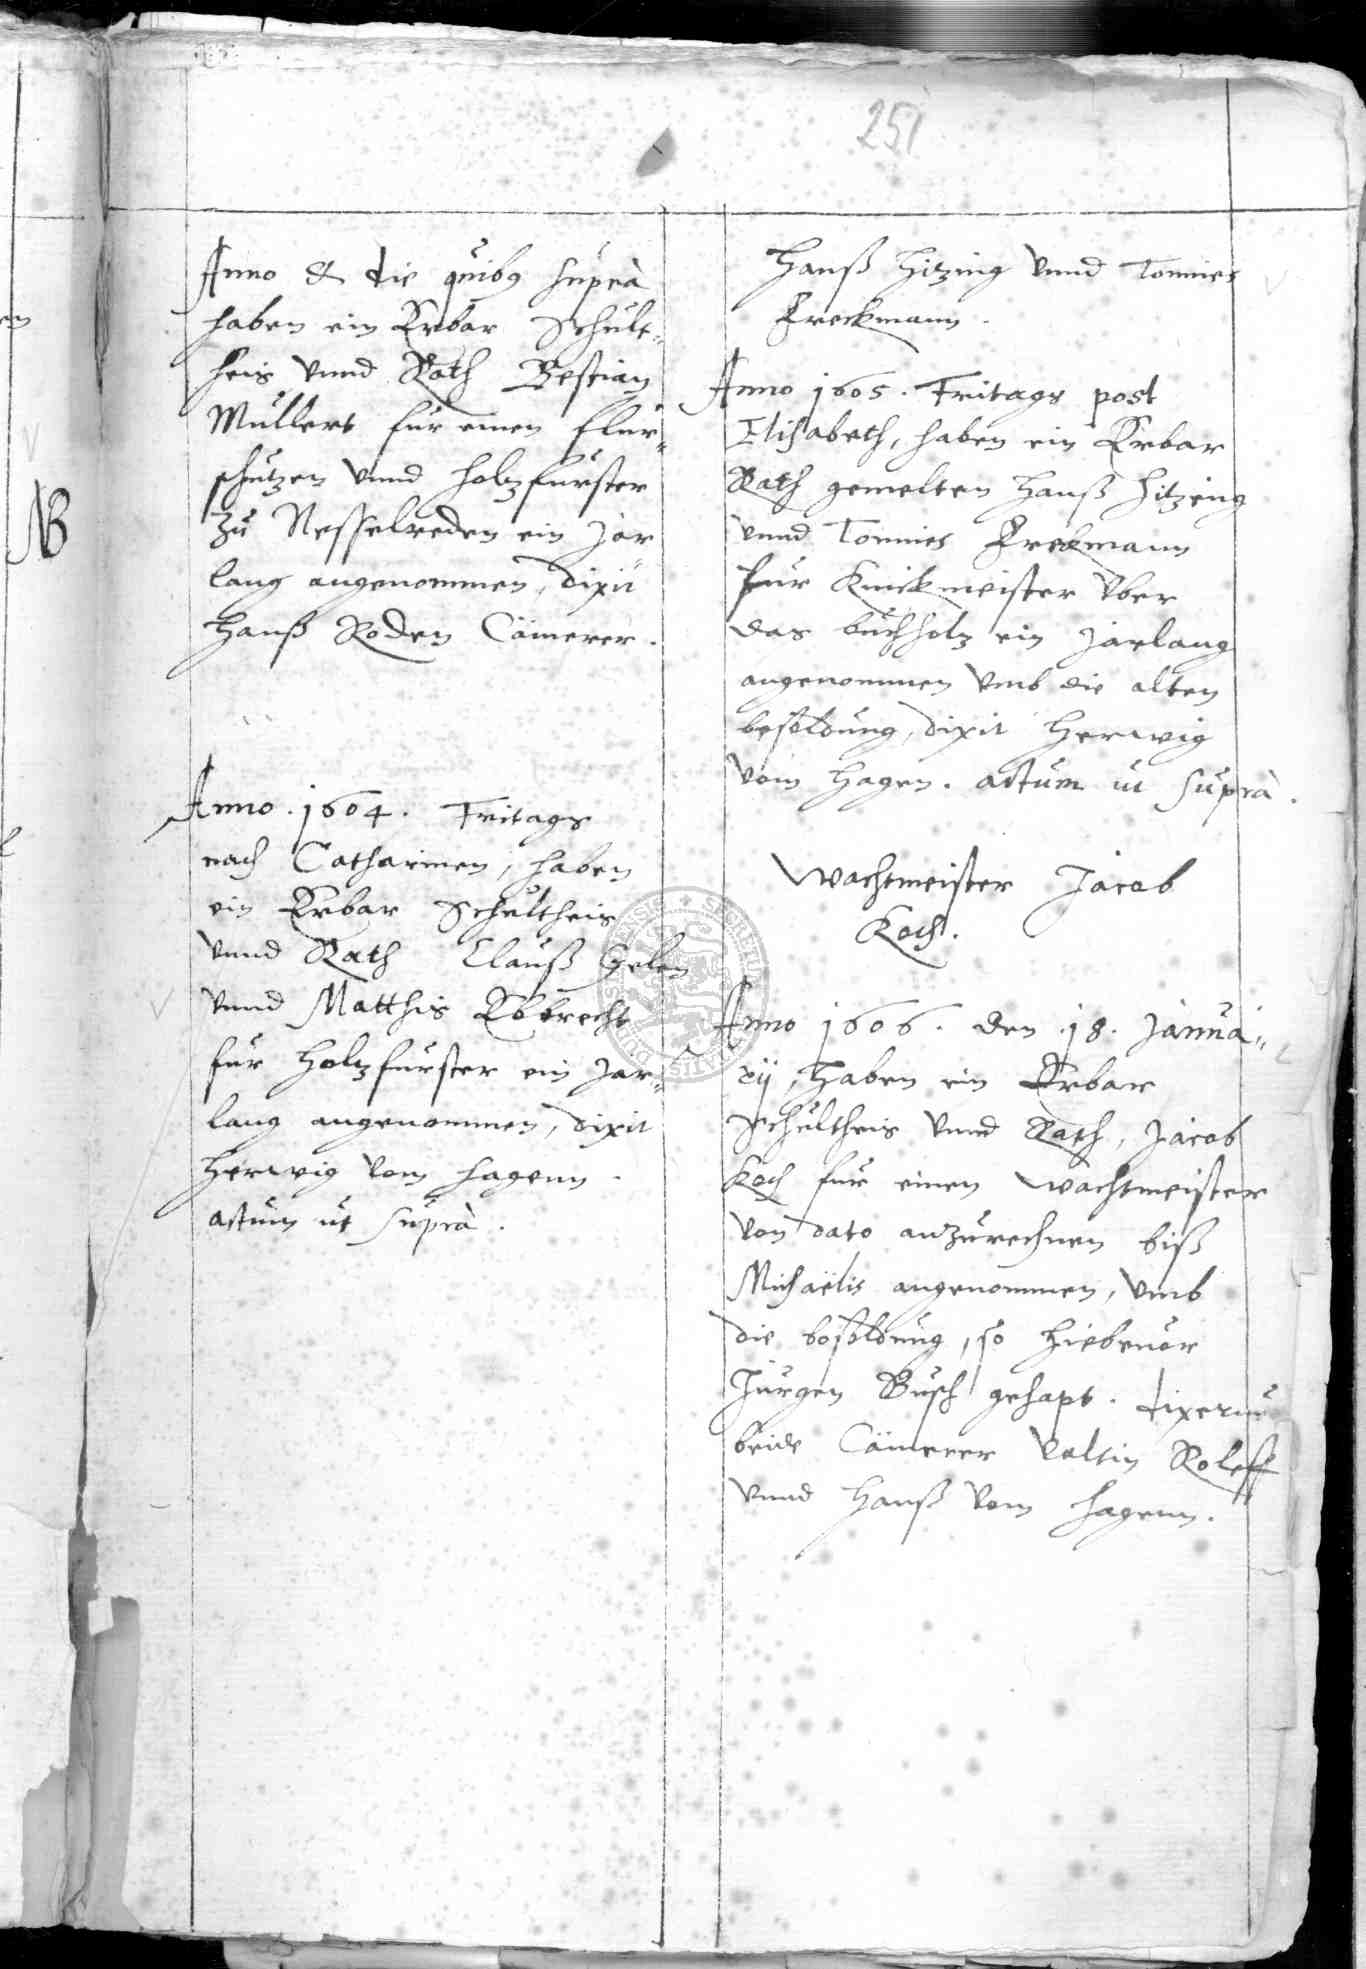 251
Anno & die quibus suprà
haben ein Erbar Schult-
heis vnnd Rath Bestian
Mullert fur einen flur-
schutzen vnnd holzfurster
zu Nesselreden ein Jar
lang angenommen, dixit
Hanß Roden Cämerer.
Anno 1604. Fritags
nach Catharinen, haben
ein Erbar Schultheis
vnnd Rath Clauß Gelen
vnnd Matthis Robrecht
fur holzfurster ein Jar-
lang angenommen, dixit
Herwig vom Hagenn.
actum ut suprà.
NB
Hanß Hitzing vnnd Tonnies
Freckmann.
Anno 1605. Fritags post
Elisabeth, haben ein Erbar
Rath gemelten Hanß Hitzing
vnnd Tonnies Freckmann
fur Knickmeister vber
das buchholz ein Jarlang
angenommen vmb die alten
besoldung, dixit Herwig
vom Hagen. actum ut suprà.
Wachtmeister Jacob
Koch.
Anno 1606. den 18. Janua-
rij, haben ein Erbar
Schultheis vnnd Rath, Jacob
Koch fur einen wachtmeister
von dato anzurechnen biß
Michaëlis angenommen, vmb
die besoldung, so hiebeuor
Jurgen Busch gehapt. dixerunt
beide Cämerer Valtin Roleff
vnnd Hanß vom Hagenn.